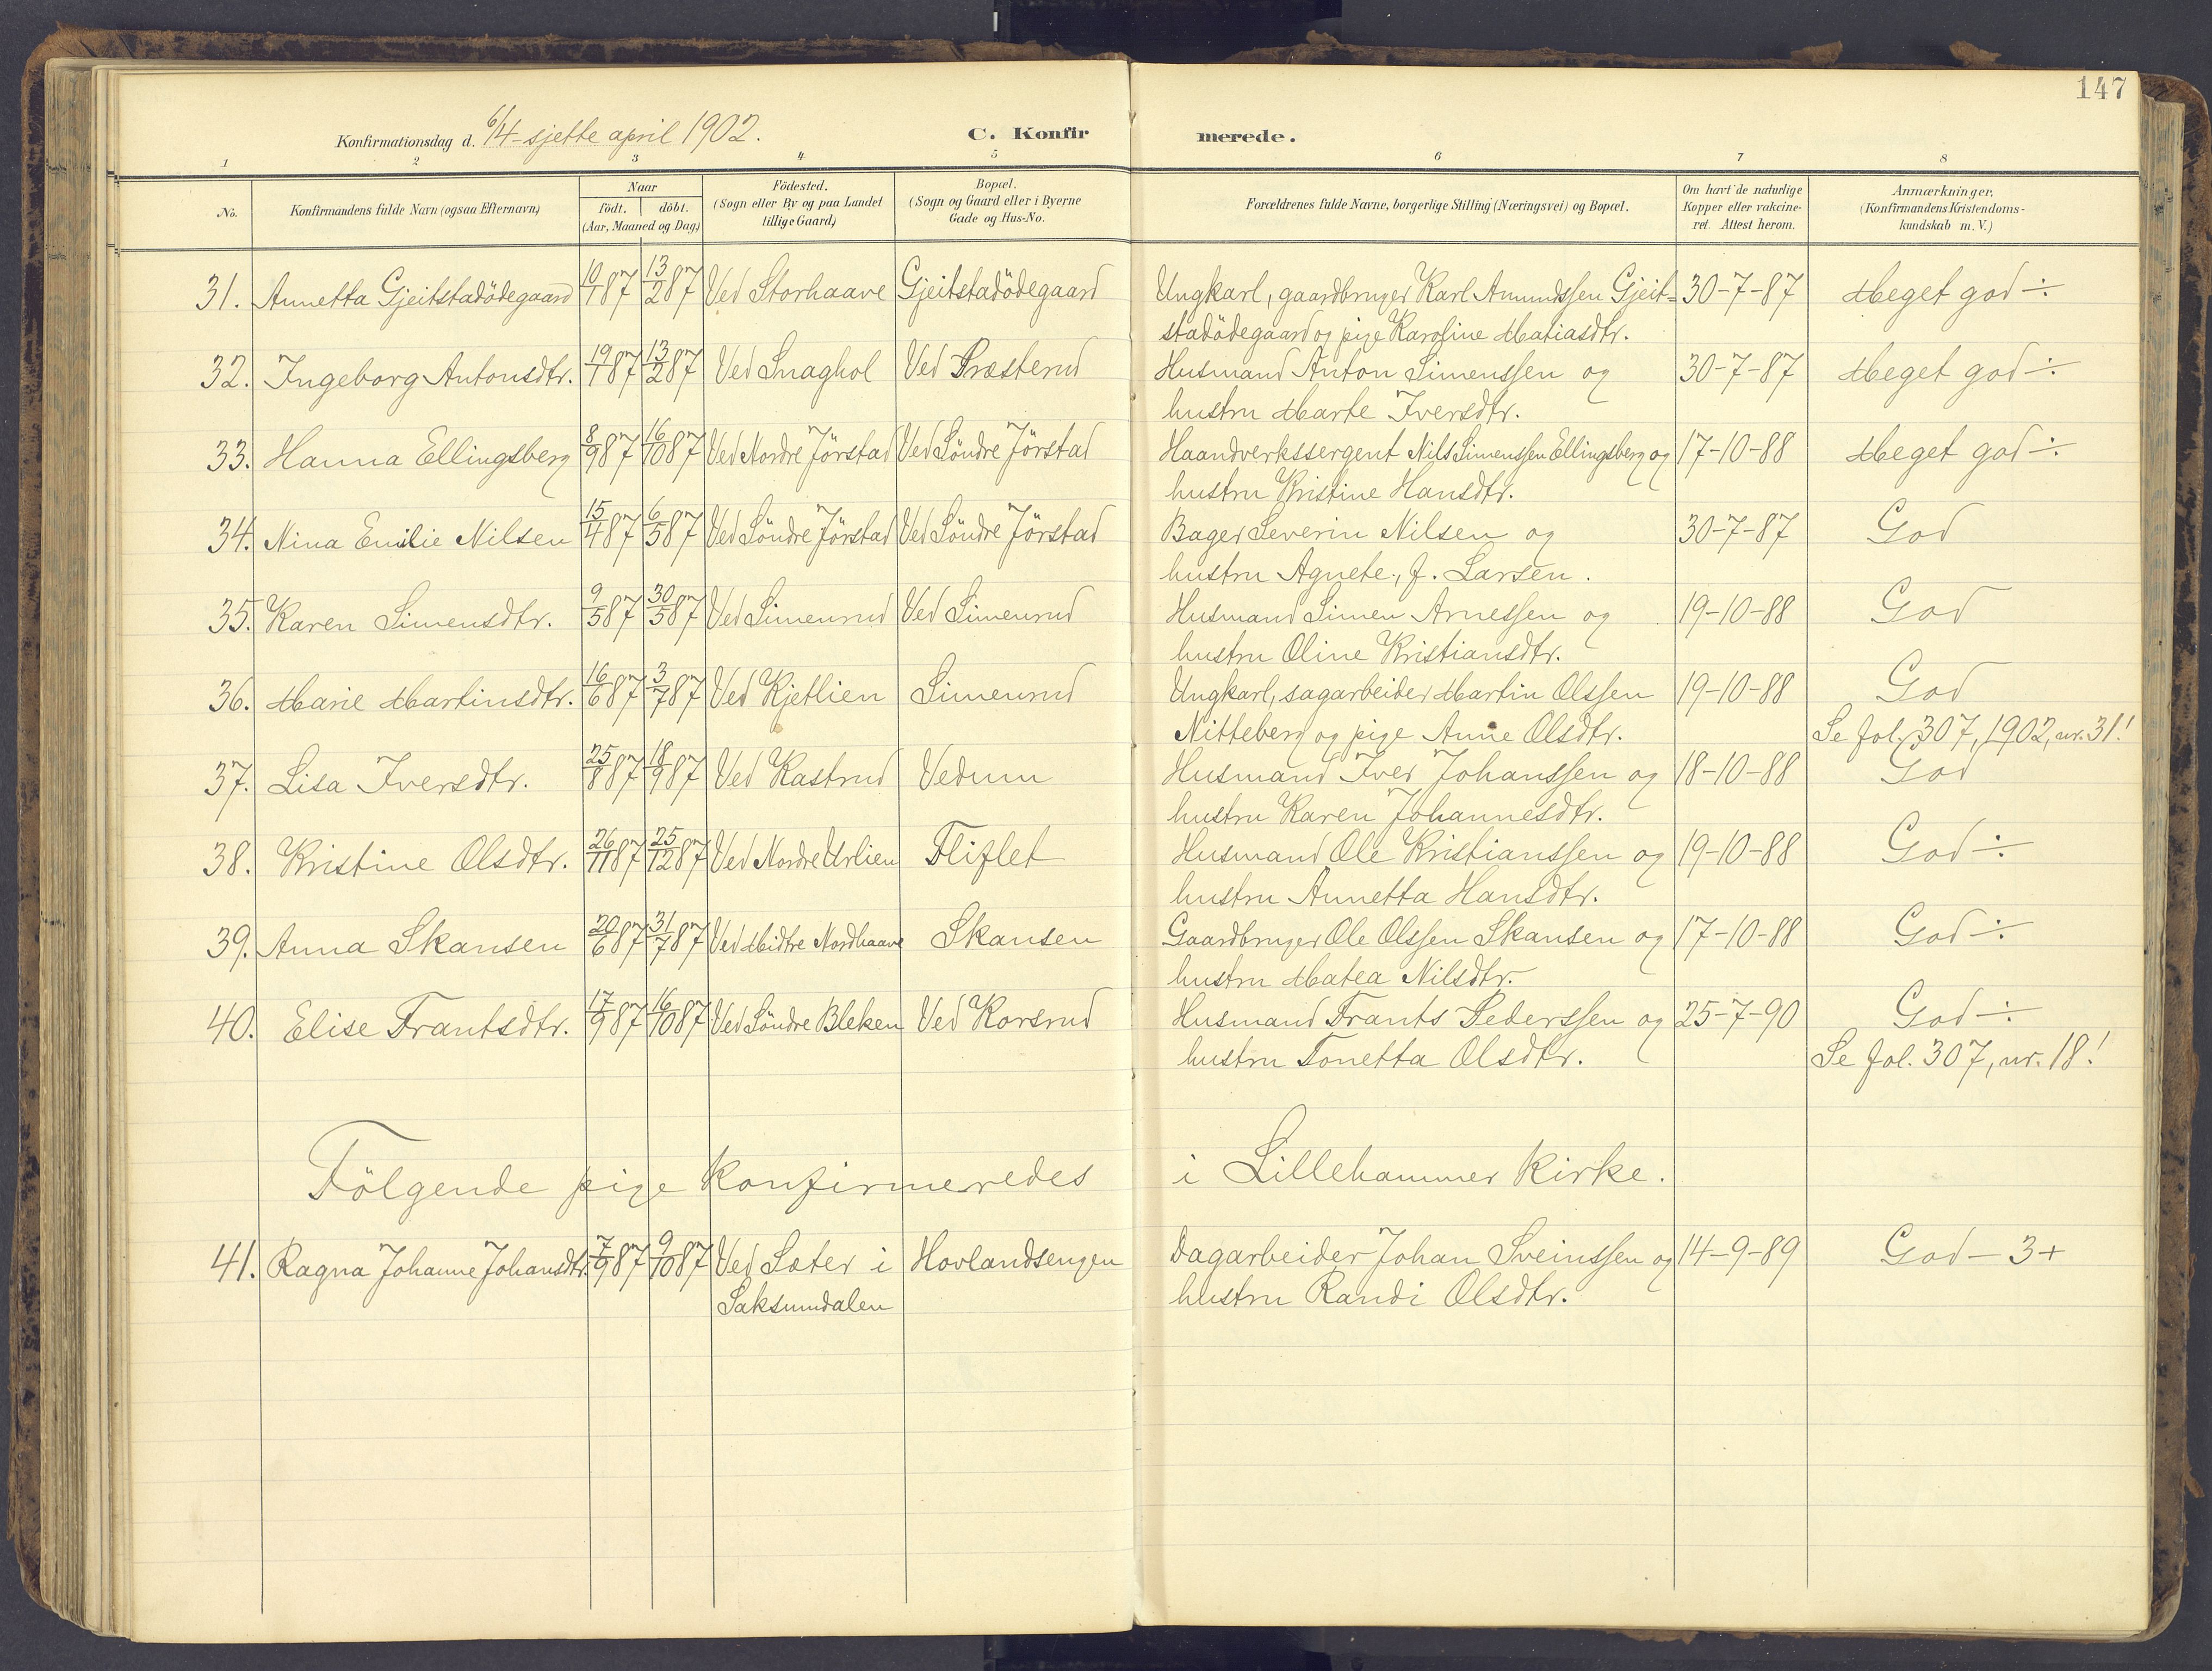 147
Konfirmationsdag d. 6/4 - sjette april 1902. C. Konfir merede.
1 2 3 4 5 6 7 8
No. Konfirmandens fulde Navn (ogsaa Efternavn) Naar födt. döbt. (Aar, Maaned og Dag) Födested. (Sogn eller By og paa Landet tillige Gaard) Bopæl. (Sogn og Gaard eller i Byerne Gade og Hus-No. Forældrenes fulde Navne, borgerlige Stilling (Næringsvei) og Bopæl. Om havt de naturlige Kopper eller vakcineret. Attest herom. Anmærkninger. (Konfirmandens Kristendomskundskab m. V.)
31. Annetta Gjeitstadödegaard 10/1 87 13/2 87 Ved Storhaave Gjeitstadödegaard Ungkarl, gaardbruger Karl Amundssen Gjeit= 30-7-87 Meget god ÷
stadödegaard og pige Karoline Matiasdtr.
32. Ingeborg Antonsdtr. 19/1 87 13/2 87 Ved Snaghol Ved Præsterud Husmand Anton Simenssen og 30-7-87 Meget god ÷
hustru Marte Iversdtr.
33. Hanna Ellingsberg 8/9 87 16/10 87 Ved Nordre Jörstad Ved Söndre Jörstad Haandverkssergent Nils Simenssen Ellingsberg og 17-10-88 Meget god ÷
hustru Kristine Hansdtr.
34. Nina Emilie Nilsen 15/4 87 6/5 87 Ved Söndre Jörstad Ved Söndre Jörstad Bager Severin Nilsen og 30-7-87 God
hustru Agnete, f. Larsen.
35. Karen Simensdtr. 9/5 87 30/5 87 Ved Simenrud Ved Simenrud Husmand Simen Arnessen og 19-10-88 God
hustru Oline Kristiansdtr.
36. Marie Martinsdtr. 16/6 87 3/7 87 Ved Kjetlien Simenrud Ungkarl, sagarbeider Martin Olssen 19-10-88 God
Nitteberg og pige Anne Olsdtr. Se fol. 307, 1902, nr. 31!
37. Lisa Iversdtr. 25/8 87 18/9 87 Ved Kastrud Vedum Husmand Iver Johanssen og 18-10-88 God
hustru Karen Johannesdtr.
38. Kristine Olsdtr. 26/11 87 25/12 87 Ved Nordre Urlien Fliflet Husmand Ole Kristianssen og 19-10-88 God ÷
hustru Annetta Hansdtr.
39. Anna Skansen 20/6 87 31/7 87 Ved Midtre Nordhaave Skansen Gaardbruger Ole Olssen Skansen og 17-10-88 God ÷
hustru Matea Nilsdtr.
40. Elise Frantsdtr. 17/9 87 16/10 87 Ved Söndre Bleken Ved Korsrud Husmand Frants Pederssen og 25-7-90 God ÷
hustru Tonetta Olsdtr. Se fol. 307, nr. 18!
Fölgende pige konfirmeredes i Lillehammer kirke.
41. Ragna Johanne Johansdtr. 7/9 87 9/10 87 Ved Sæter i Hovlandsengen Dagarbeider Johan Sveinssen og 14-9-89 God - 3+
Saksumdalen hustru Randi Olsdtr.